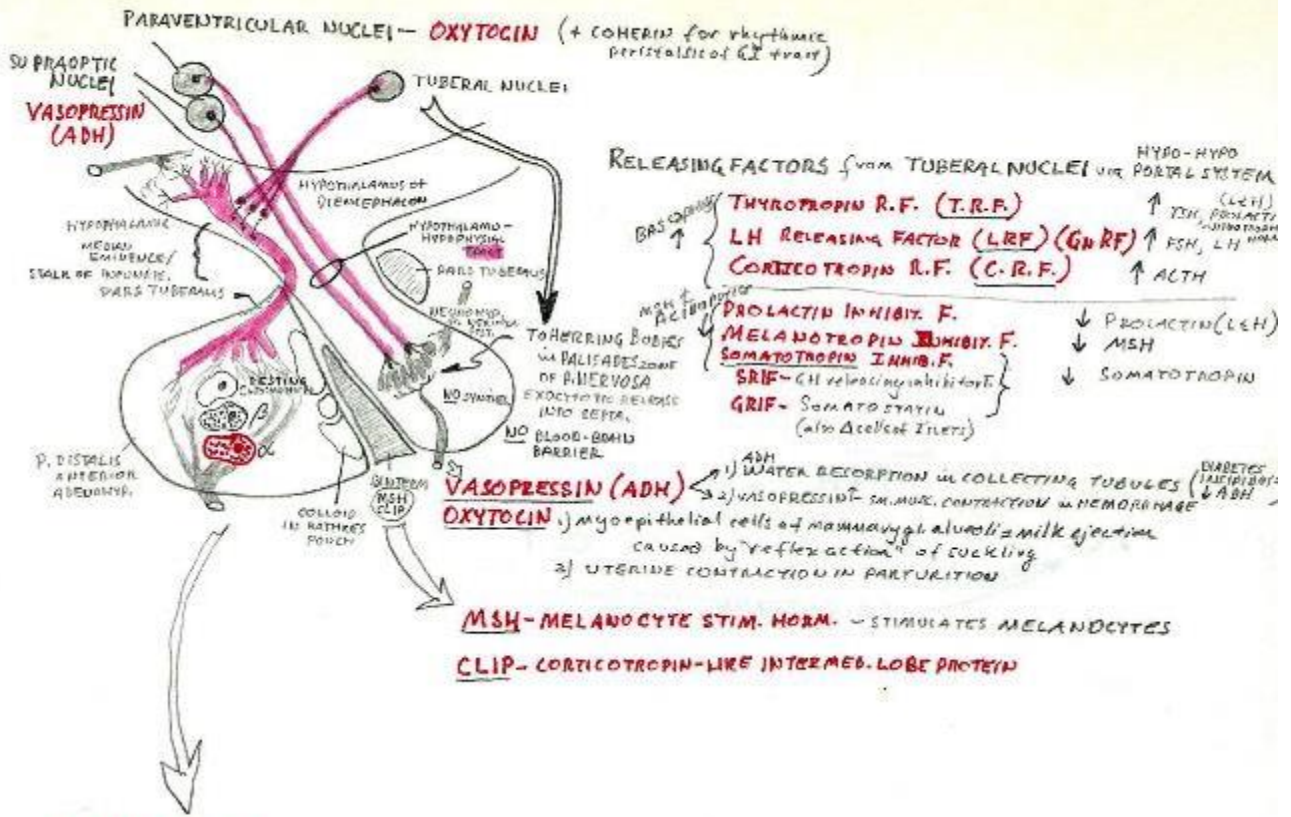 PARAVENTRICULAR NUCLEI - OXYTOCIN (+ COHERIN for rhythmic
peristalsis of GI tract)
SUPRAOPTIC
NUCLEI
VASOPRESSIN
(ADH)
TUBERAL NUCLEI
HYPOTHALAMUS of
DIENCEPHALON
HYPOTHALAMO-
HYPOPHYSIAL
TRACT
MEDIAN
EMINENCE/
STALK OF
PARS TUBERALIS
PARS TUBERALIS
RESTING
β
α
P. DISTALIS
ANTERIOR
ADENOHYP.
COLLOID
IN RATHKES
POUCH
P. INTERM
MSH
CLIP
NO
TO HERRING BODIES
in PALISADES ZONE
OF P. NERVOSA
EXOCYTOTIC RELEASE
INTO SEPTA.
NO BLOOD-BRAIN
BARRIER
RELEASING FACTORS from TUBERAL NUCLEI via HYPO-HYPO
PORTAL SYSTEM
BASOPHILS ↑
THYROTROPIN R.F. (T.R.F.)
↑ TSH, PROLACTIN (LtH)
LH RELEASING FACTOR (LRF) (GnRF) ↑ FSH, LH
CORTICOTROPIN R.F. (C.R.F.) ↑ ACTH
MSH +
ACIDOPHILS ↓
PROLACTIN INHIBIT. F. ↓ PROLACTIN (LtH)
MELANOTROPIN INHIBIT. F. ↓ MSH
SOMATOTROPIN INHIB. F. ↓ SOMATOTROPIN
SRIF - GH releasing inhibitor F.
GRIF - SOMATOSTATIN
(also Δ cells of Islets)
VASOPRESSIN (ADH)
ADH
1) WATER RESORPTION in COLLECTING TUBULES (DIABETES
INSIPIDUS
↓ ADH)
2) VASOPRESSIN ↑ SM. MUSC. CONTRACTION in HEMORRHAGE
OXYTOCIN 1) myoepithelial cells of mammary gl. alveoli = milk ejection
caused by "reflex action" of suckling
2) UTERINE CONTRACTION IN PARTURITION
MSH - MELANOCYTE STIM. HORM. - STIMULATES MELANOCYTES
CLIP - CORTICOTROPIN-LIKE INTERMED. LOBE PROTEIN